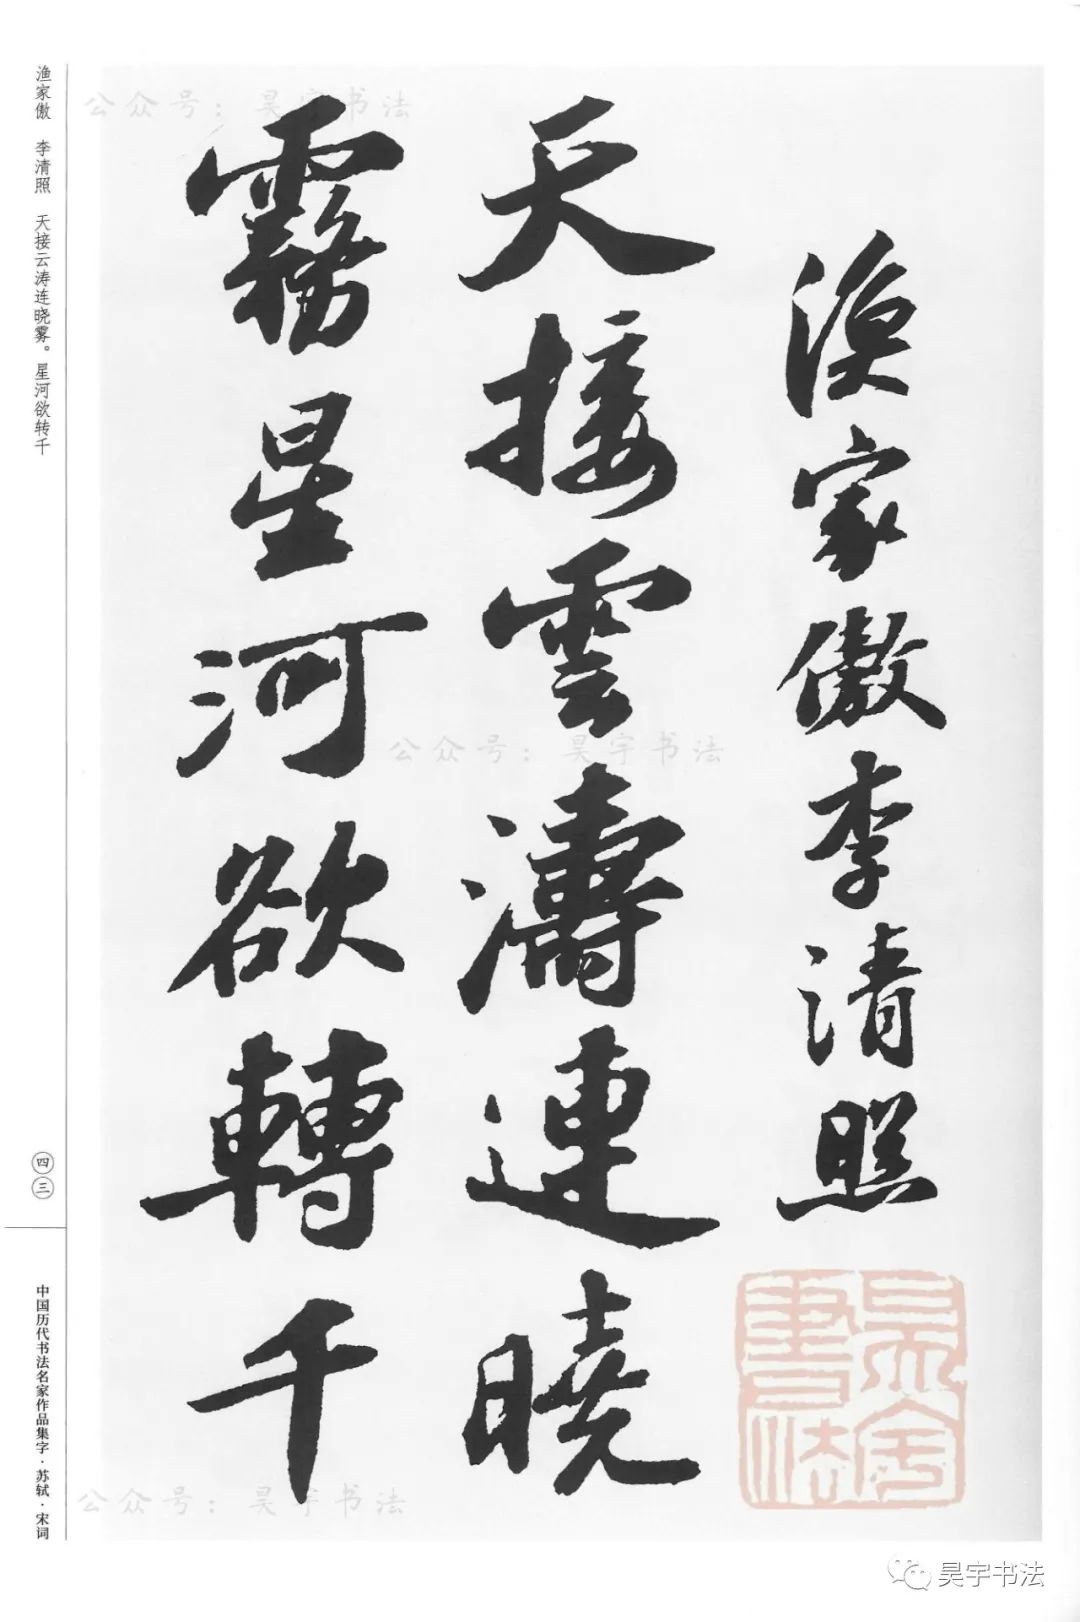 漁家傲李清照
天接雲濤連曉
霧星河欲轉千
渔家傲　李清照　天接云涛连晓雾。星河欲转千
四三
中国历代书法名家作品集字·苏轼·宋词
公众号：昊宇书法
公众号：昊宇书法
公众号：昊宇书法
昊宇書法
昊宇书法